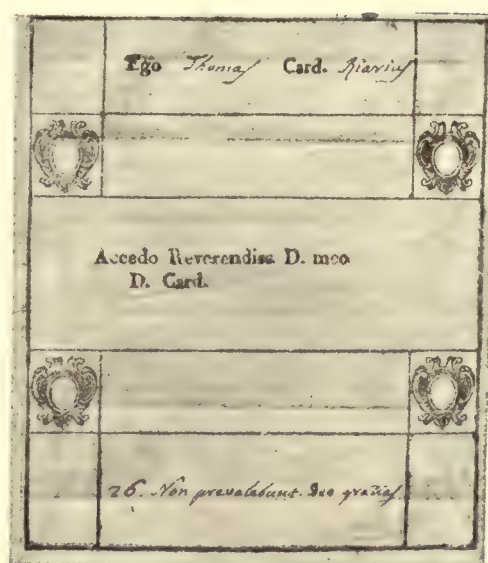 Ego Thomas Card. Riarius
Accedo Reverendiss D. meo
D. Card.
26. Non prevalebunt. Deo gratias